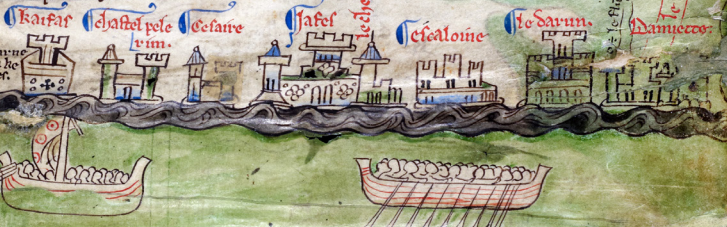 Kaifas
Chastel pele
rim.
Cesaire
Jafes
Escalonie
Le darun.
Damiette.